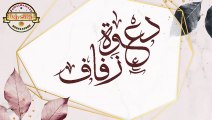 دعوة
زفاف